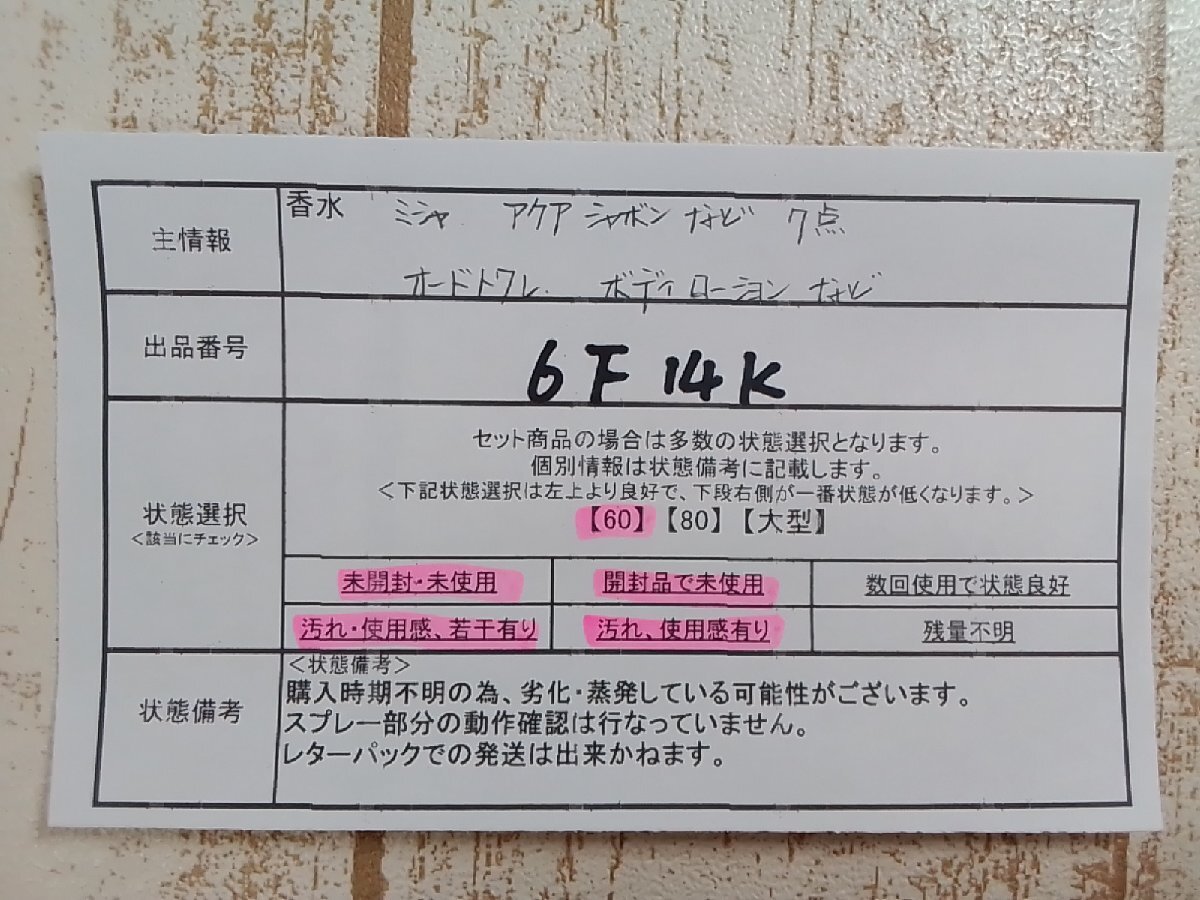 主情報
香水 ミシャ アクア シャボン など 7点
オードトワレ. ボディローション など
出品番号
6F14K
状態選択
<該当にチェック>
セット商品の場合は多数の状態選択となります。
個別情報は状態備考に記載します。
<下記状態選択は左上より良好で、下段右側が一番状態が低くなります。>
【60】【80】【大型】
未開封・未使用 開封品で未使用 数回使用で状態良好
汚れ・使用感、若干有り 汚れ、使用感有り 残量不明
状態備考
<状態備考>
購入時期不明の為、劣化・蒸発している可能性がございます。
スプレー部分の動作確認は行なっていません。
レターパックでの発送は出来かねます。